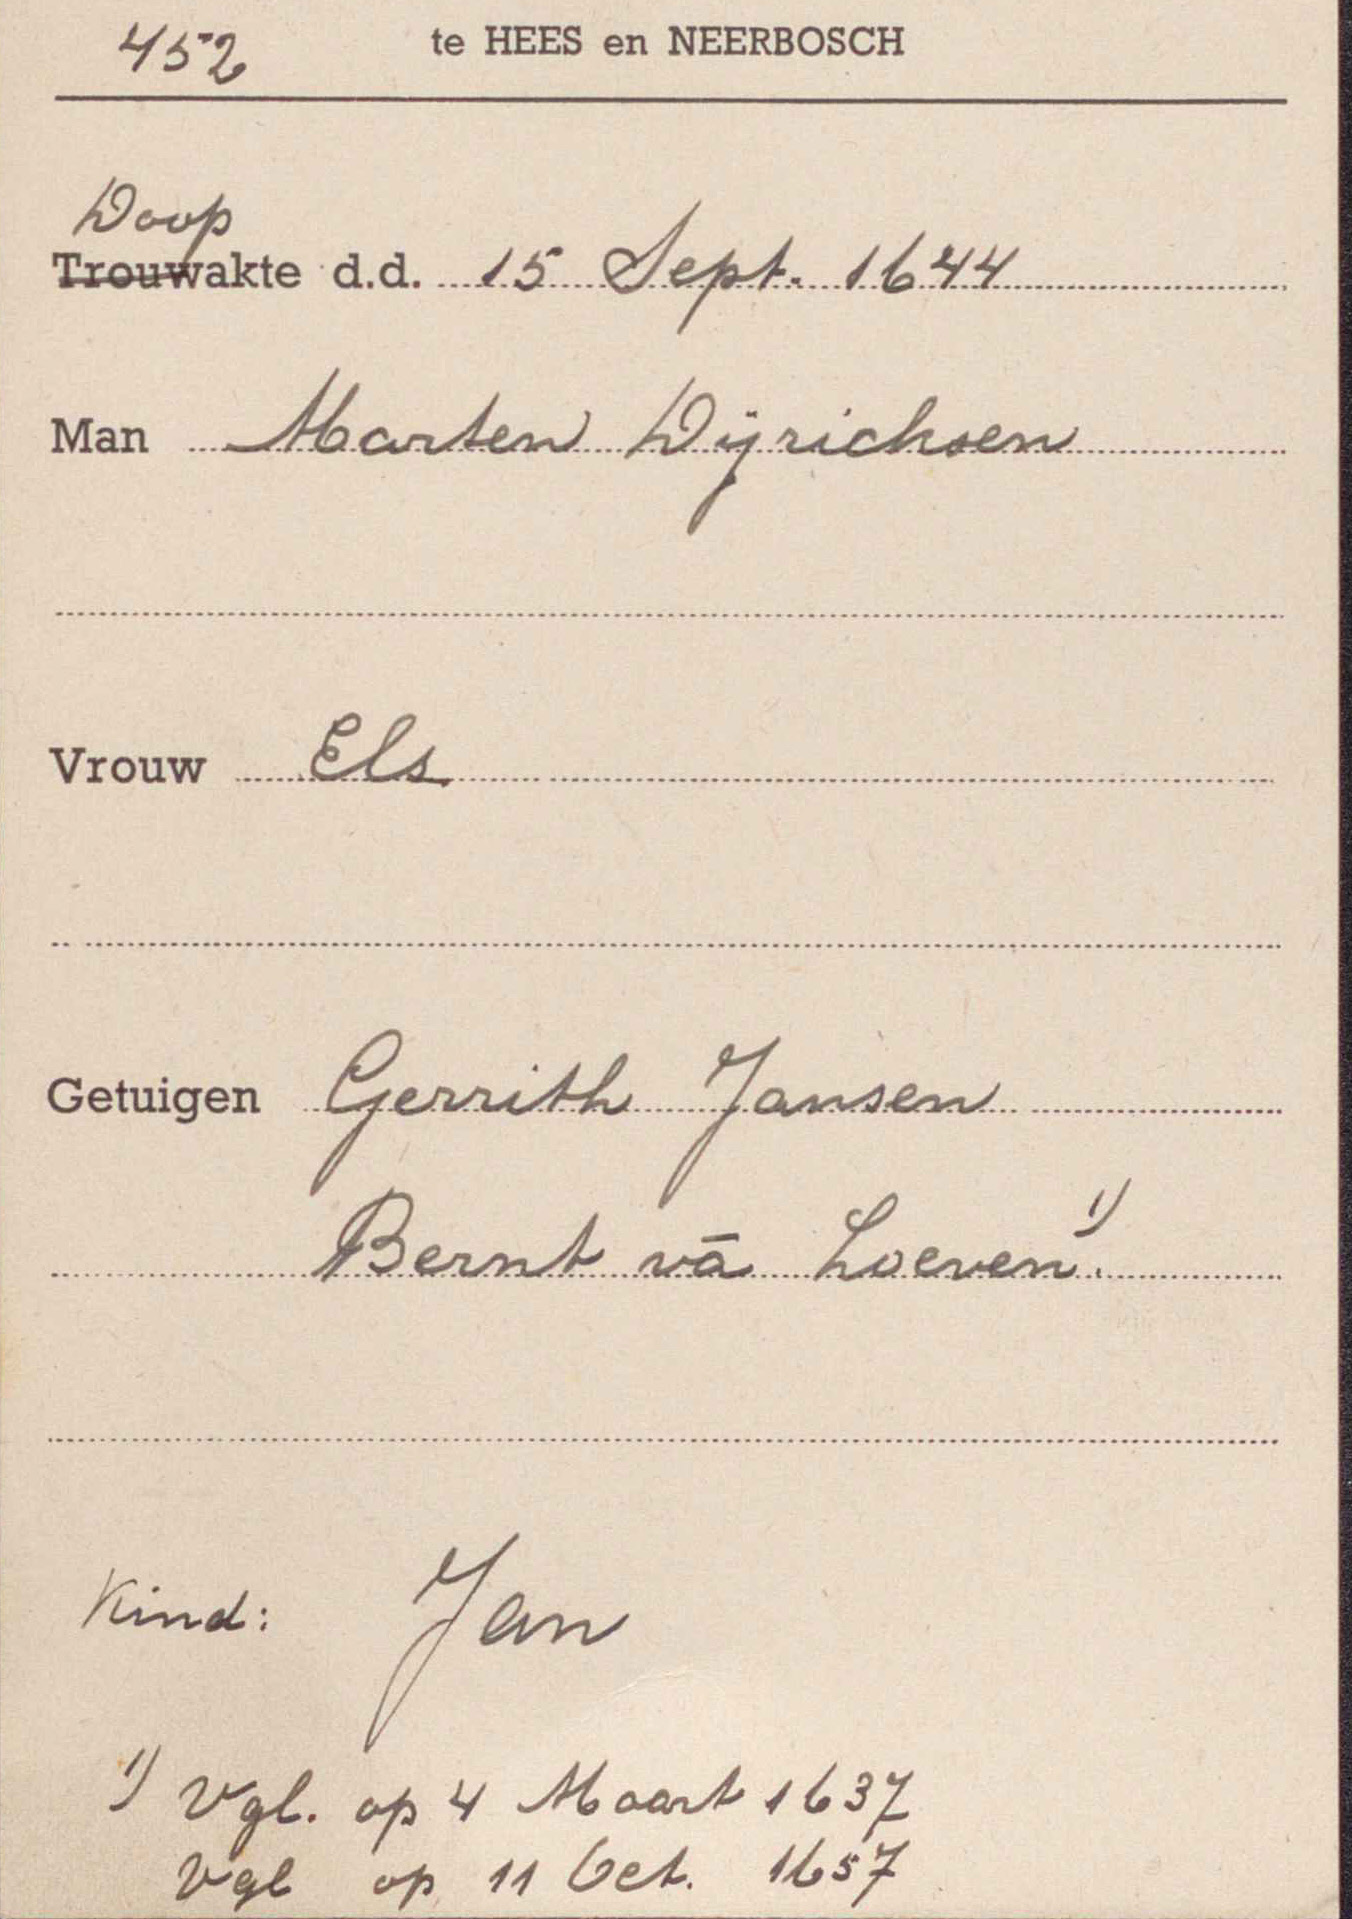 452 te HEES en NEERBOSCH
Doop
Trouwakte d.d. 15 Sept. 1644
Man Marten Dÿricksen
Vrouw Els
Getuigen Gerrith Jansen
Bernt vā Loeven 1).
Kind: Jan
1) Vgl. op 4 Maart 1637
Vgl op 11 Oct. 1657